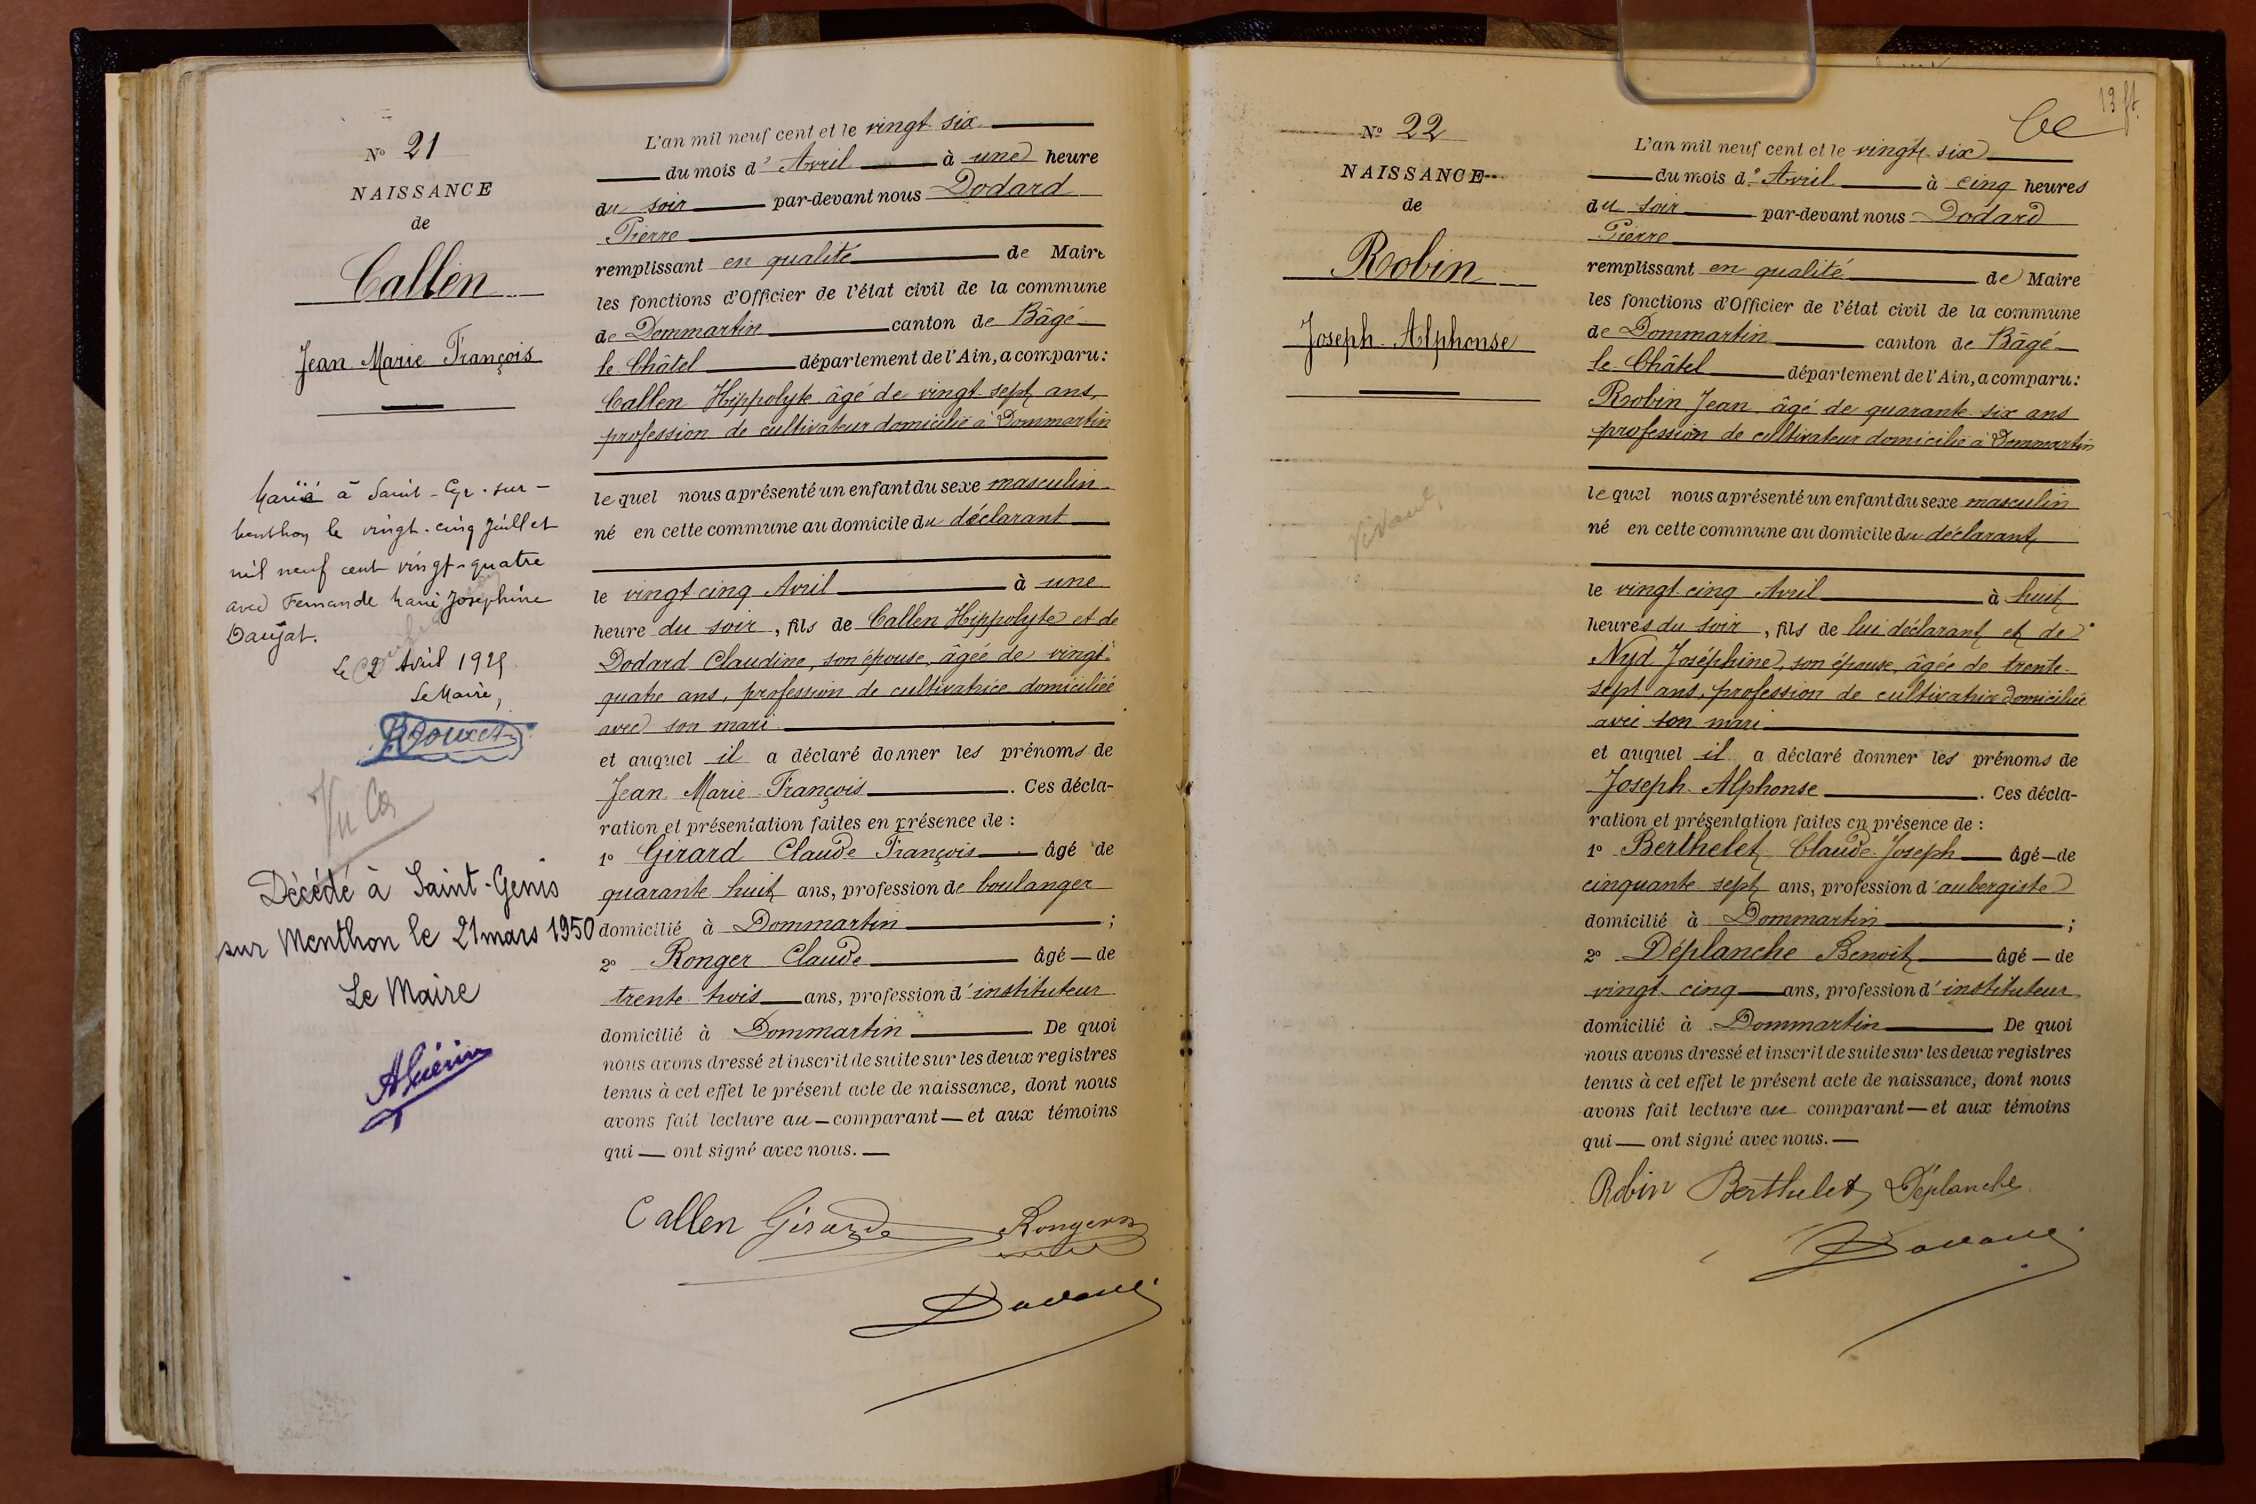 N° 21
NAISSANCE
de
Callen
Jean Marie François
Marié à Saint-Cyr-sur-
Menthon le vingt-cinq Juillet
mil neuf cent vingt-quatre
avec Fernande Marie Joséphine
Daujat.
Le 2 Avril 1925
Le Maire,
Vu
Décédé à Saint-Genis
sur Menthon le 21 mars 1950
Le Maire
AGuérin
L'an mil neuf cent et le vingt six
du mois d' Avril à une heure
du soir par-devant nous Dodard
Pierre
remplissant en qualité de Maire
les fonctions d'Officier de l'état civil de la commune
de Dommartin canton de Bâgé
le Châtel département de l'Ain, a comparu:
Callen Hippolyte âgé de vingt sept ans,
profession de cultivateur domicilié à Dommartin
lequel nous a présenté un enfant du sexe masculin
né en cette commune au domicile du déclarant
le vingt cinq Avril à une
heure du soir, fils de Callen Hippolyte et de
Dodard Claudine, son épouse, âgée de vingt-
quatre ans, profession de cultivatrice domiciliée
avec son mari
et auquel il a déclaré donner les prénoms de
Jean Marie François. Ces décla-
ration et présentation faites en présence de :
1° Girard Claude François âgé de
quarante huit ans, profession de boulanger
domicilié à Dommartin ;
2° Ronger Claude âgé de
trente trois ans, profession d'instituteur
domicilié à Dommartin De quoi
nous avons dressé et inscrit de suite sur les deux registres
tenus à cet effet le présent acte de naissance, dont nous
avons fait lecture au comparant et aux témoins
qui ont signé avec nous.
Callen Girard Ronger
N° 22
NAISSANCE
de
Robin
Joseph Alphonse
L'an mil neuf cent et le vingt six
du mois d' Avril à cinq heures
du soir par-devant nous Dodard
Pierre
remplissant en qualité de Maire
les fonctions d'Officier de l'état civil de la commune
de Dommartin canton de Bâgé
le Châtel département de l'Ain, a comparu:
Robin Jean âgé de quarante six ans
profession de cultivateur domicilié à Dommartin
lequel nous a présenté un enfant du sexe masculin
né en cette commune au domicile du déclarant
le vingt cinq Avril à huit
heures du soir, fils de lui déclarant et de
Nyd Joséphine, son épouse, âgée de trente-
sept ans, profession de cultivatrice domiciliée
avec son mari
et auquel il a déclaré donner les prénoms de
Joseph Alphonse. Ces décla-
ration et présentation faites en présence de :
1° Berthelet Claude Joseph âgé de
cinquante sept ans, profession d'aubergiste
domicilié à Dommartin ;
2° Déplanche Benoit âgé de
vingt cinq ans, profession d'instituteur
domicilié à Dommartin De quoi
nous avons dressé et inscrit de suite sur les deux registres
tenus à cet effet le présent acte de naissance, dont nous
avons fait lecture au comparant et aux témoins
qui ont signé avec nous.
Robin Berthelet Déplanche